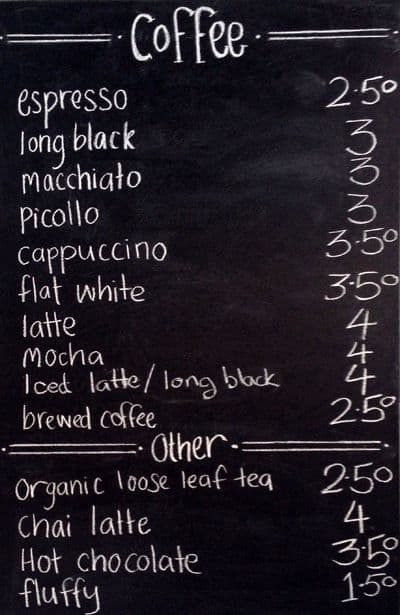 Coffee
espresso 2.50
long black 3
macchiato 3
picollo 3
cappuccino 3.50
flat white 3.50
latte 4
mocha 4
Iced latte/long black 4
brewed coffee 2.50
Other
Organic loose leaf tea 2.50
Chai latte 4
Hot chocolate 3.50
fluffy 1.50